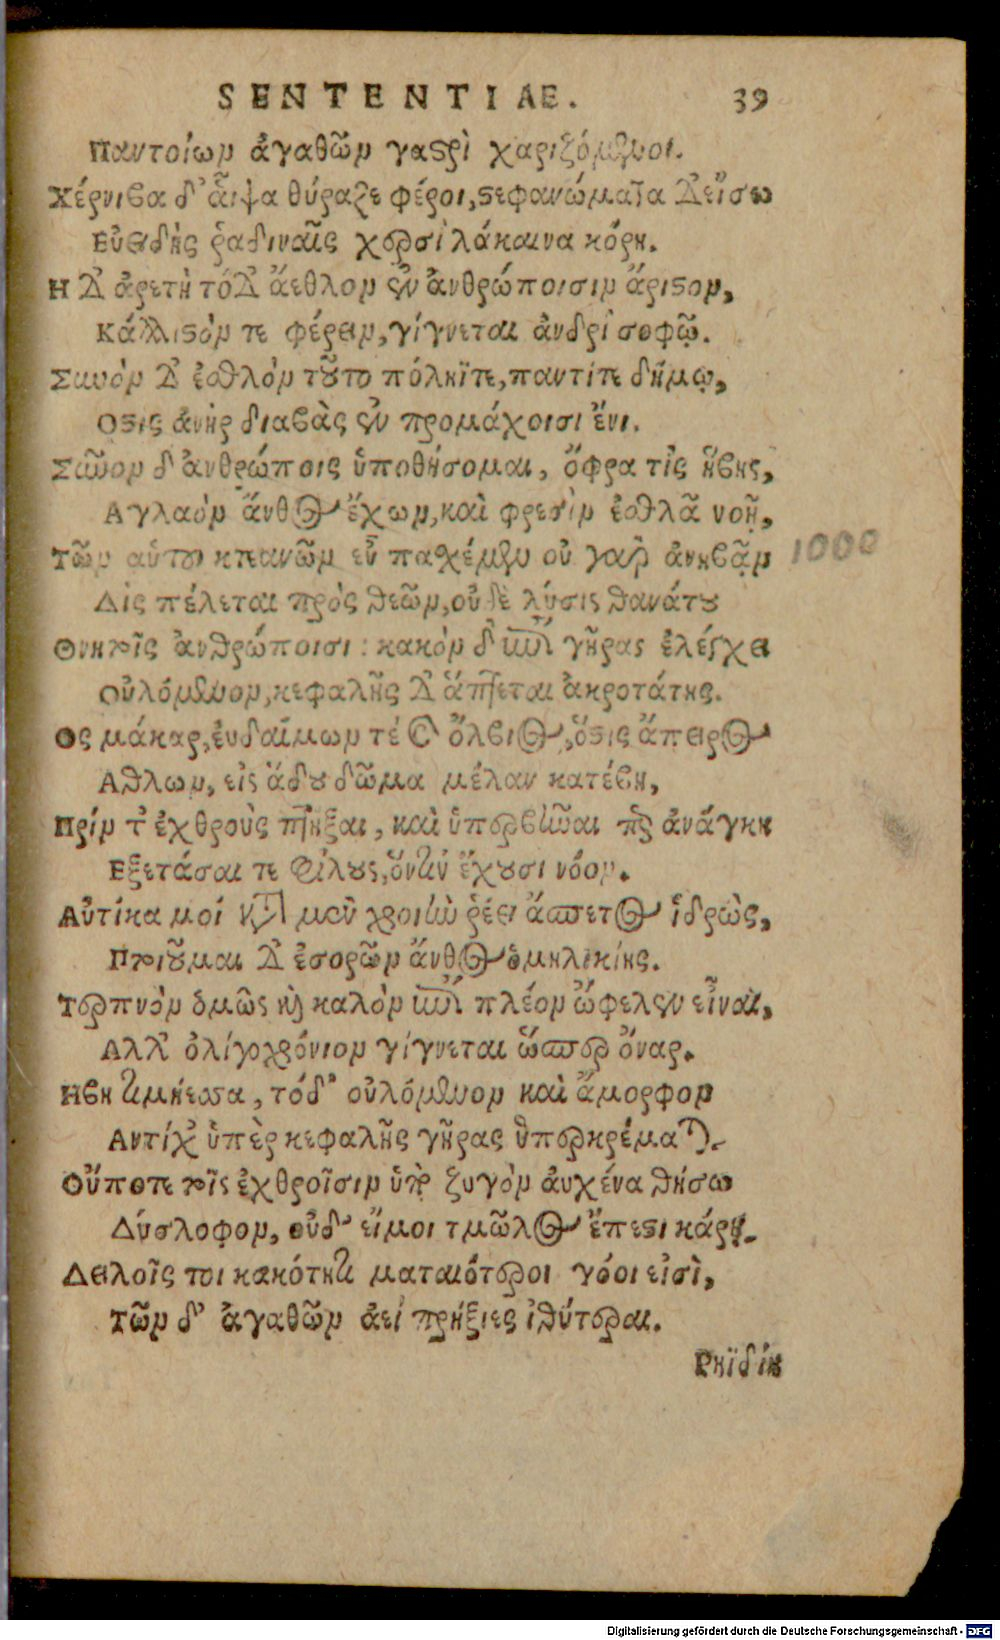 SENTENTIAE. 39
Παντοίων ἀγαθῶν γαστρὶ χαριζόμενοι.
Χέρνιβα δ' αἶψα θύραζε φέροι, στεφανώματα δ' εἴσω
Εὐειδὴς ῥαδιναῖς χερσὶ λάκαινα κόρη.
Η δ' ἀρετὴ τόδ' ἄεθλον ἐν ἀνθρώποισιν ἄριστον,
Κάλλιστόν τε φέρειν, γίγνεται ἀνδρὶ σοφῷ.
Ξυνὸν δ' ἐσθλὸν τοῦτο πόληΐτε, παντίτε δήμῳ,
Οστις ἀνὴρ διαβὰς ἐν προμάχοισι ἔνι.
Ξυνὸν δ' ἀνθρώποις ὑποθήσομαι, ὄφρα τὶς ἥβης,
Αγλαὸν ἄνθος ἔχων, καὶ φρεσὶν ἐσθλᾶ νοῇ,
Τῶν αὑτοῦ κτεανῶν εὖ πασχέμεν οὐ γὰρ ἀνηβᾷν 1000
Δὶς πέλεται πρὸς θεῶν, οὐδὲ λύσις θανάτου
Θνητοῖς ἀνθρώποισι: κακὸν δ' ἐπὶ γῆρας ἐλέγχει
Οὐλόμενον, κεφαλῆς δ' ἅπτεται ἀκροτάτης.
Ος μάκαρ, ἐυδαίμων τέ καὶ ὄλβιος, ὅστις ἄπειρος
Αθλων, εἰς ἅδου δῶμα μέλαν κατέβη,
Πρίν τ' ἐχθροὺς πτῆξαι, καὶ ὑπερβῆναι περ ἀνάγκη
Εξετάσαι τε φίλους, ὅντιν ἔχουσι νόον.
Αὐτίκα μοί κατὰ μὲν χροιὴν ῥέει ἄσπετος ἱδρὼς,
Πτοιοῦμαι δ' ἐσορῶν ἄνθος ὁμηλικίης.
Τερπνὸν ὁμῶς καὶ καλὸν ἐπὶ πλέον ὤφελεν εἶναι,
Αλλ' ὀλίγοχρόνιον γίγνεται ὥσπερ ὄναρ.
Ηβη τιμήεσσα, τόδ' οὐλόμενον καὶ ἄμορφον
Αντίχ' ὑπὲρ κεφαλῆς γῆρας ὑπερκρέμαται.
Οὔποτε τοῖς ἐχθροῖσιν ὑπὸ ζυγὸν αὐχένα θήσω
Δύσλοφον, οὐδ' εἴμοι τμῶλος ἔπεστι κάρη.
Δειλοῖς τοι κακότητι ματαιότεροι γόοι εἰσὶ,
Τῶν δ' ἀγαθῶν ἀεί πρήξιες ἰθύτεραι.
Ρηϊδίη
Digitalisierung gefördert durch die Deutsche Forschungsgemeinschaft - DFG